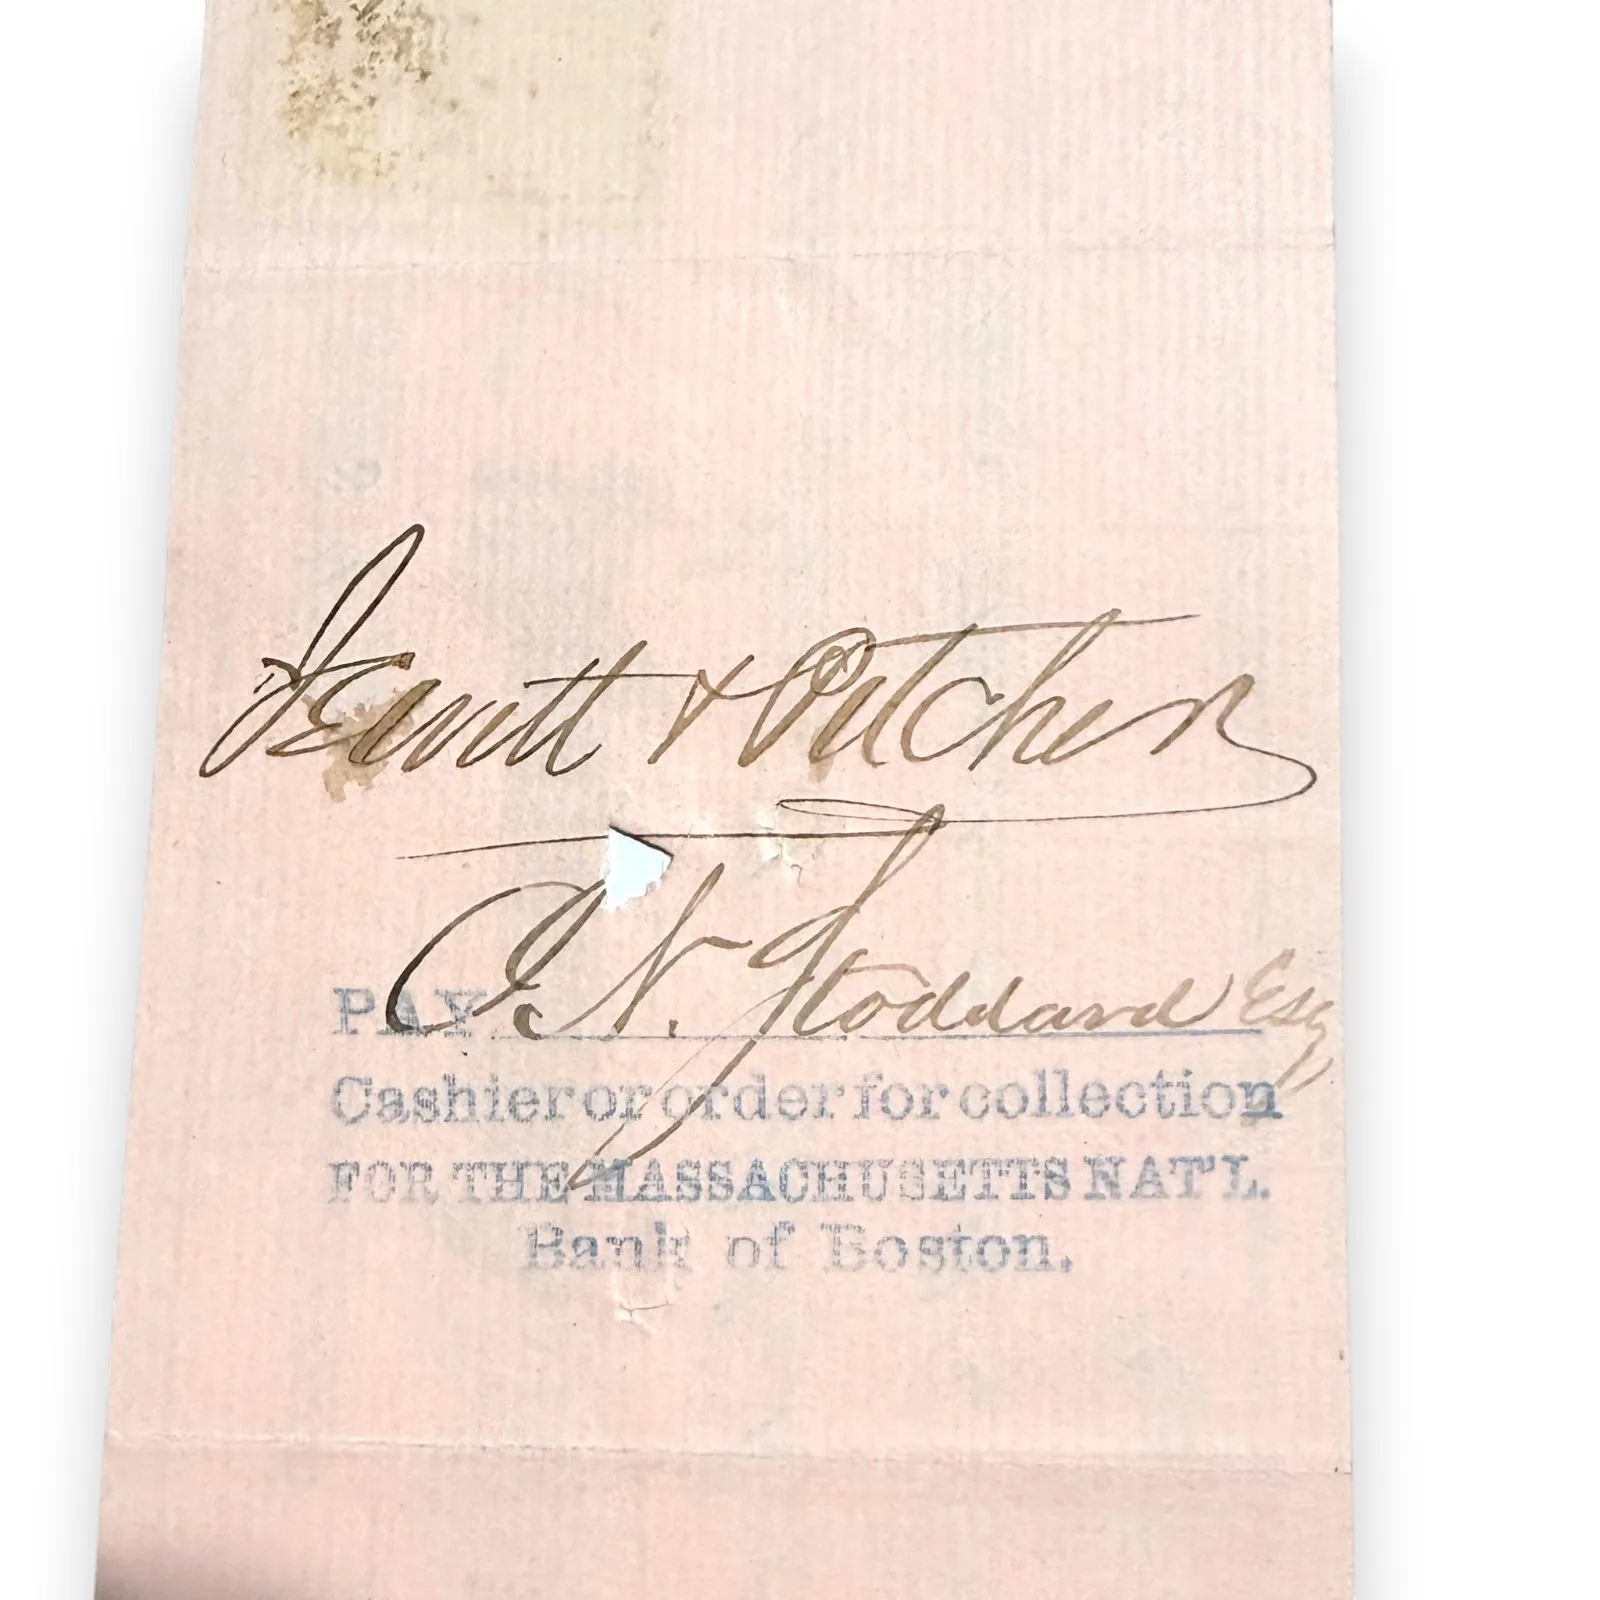 Jewitt & Pitcher
PAY I. N. Stoddard Esq
Cashier or order for collection
FOR THE MASSACHUSETTS NAT'L.
Bank of Boston.